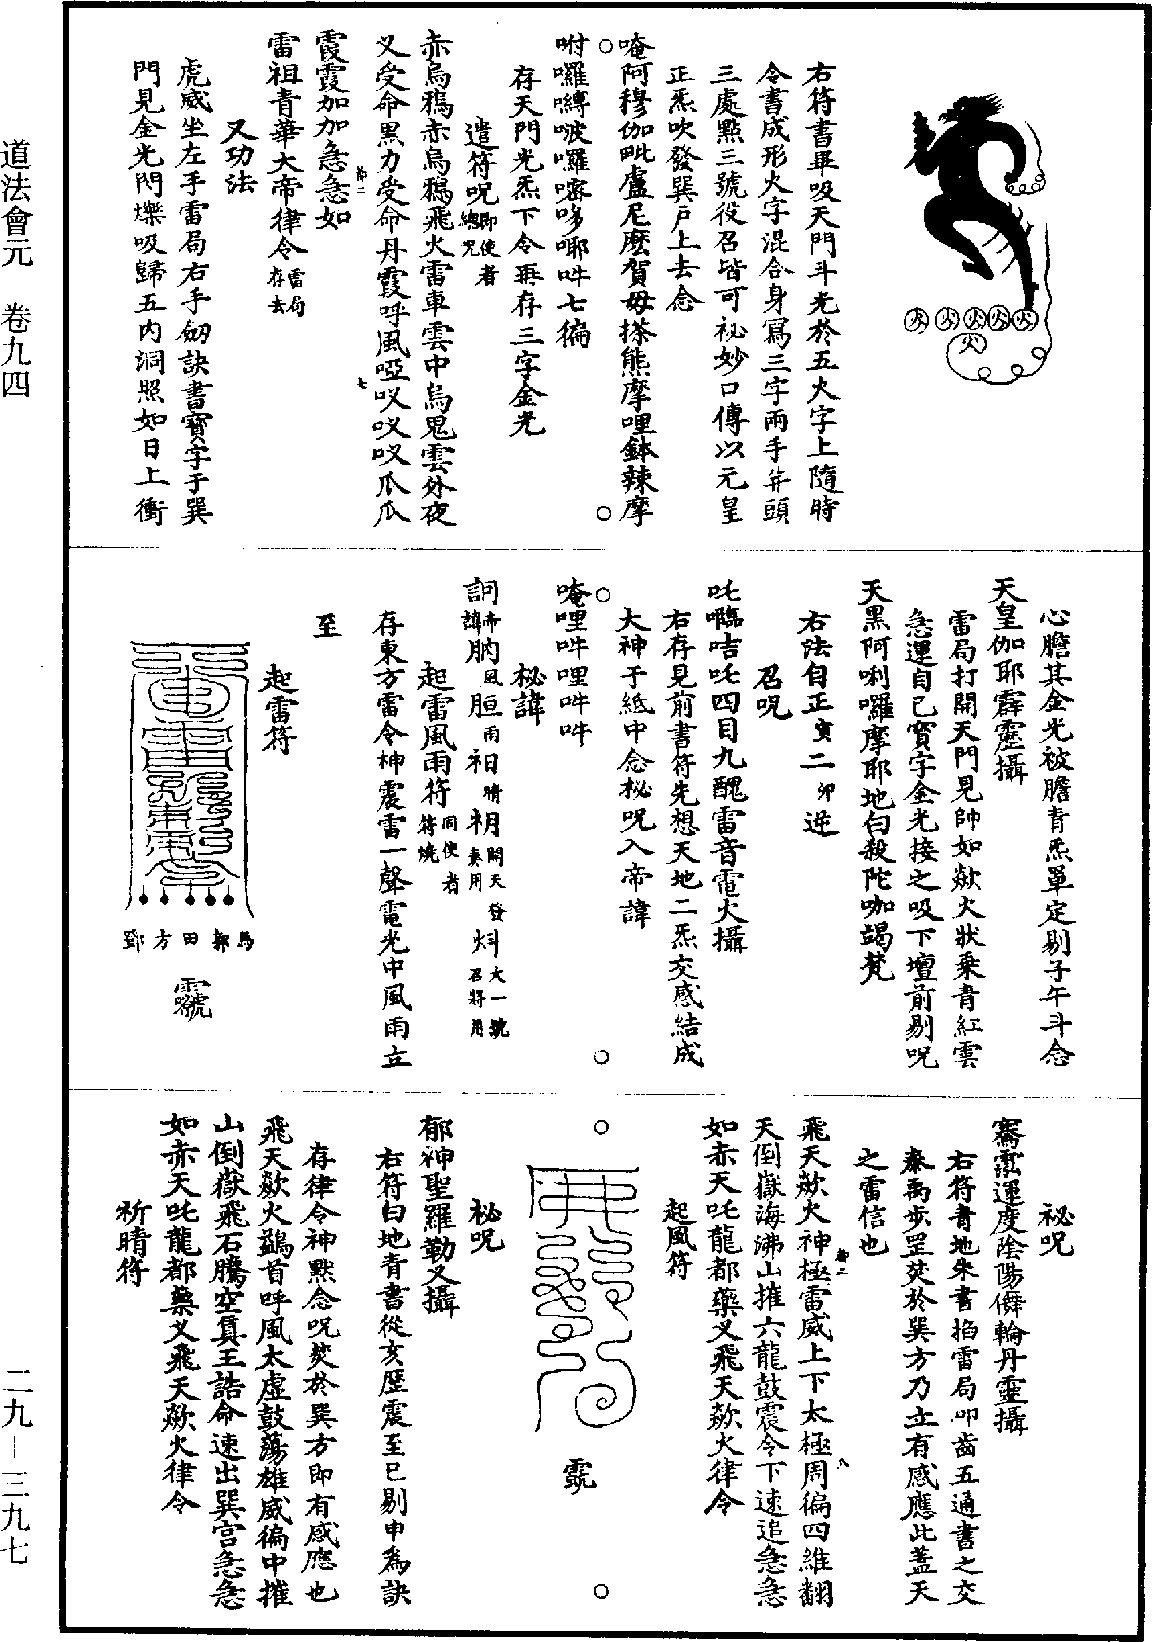 道法會元　卷九四
右符書畢吸天門斗光於五火字上隨時
令書成形火字混合身寫三字兩手并頭
三處點三號役召皆可祕妙口傳以元皇
正炁吹發巽戶上去念
唵阿穆伽毗盧尼麽賀母捺熊摩哩鉢辣摩
咐囉嚩啵囉嚓哆㖿吽七徧
存天門光炁下令再存三字金光
遣符呪即使者總咒
赤烏鴉赤烏鴉飛火雷車雲中烏鬼雲外夜
叉受命黑力受命丹霞呼風啞㕚㕚㕚爪爪
霞霞加加急急如
雷祖青華大帝律令雷局存去
又功法
虎威坐左手雷局右手劒訣書寶字于巽
門見金光閃爍吸歸五内洞照如日上衝
心膽其金光被膽青炁罩定剔子午斗念
天皇伽耶霹靂攝
雷局打開天門見帥如歘火狀乘青紅雲
急運自己寶字金光接之吸下壇前剔呪
天黑阿唎囉摩耶地白殺陀咖竭梵
右法自正寅二卯逆
召呪
吒𠻴咭吒四目九醜雷音電火攝
右存見前書符先想天地二炁交感結成
大神于紙中念秘呪入帝諱
唵哩吽哩吽吽
秘諱
起雷風雨符同使者符燒
存東方雷令神震雷一聲電光中風雨立
至
起雷符
馬郭田方鄧
祕呪
右符青地朱書掐雷局叩齒五通書之交
泰禹步罡焚於巽方乃立有感應此蓋天
之雷信也
飛天歘火神極雷威上下太極周徧四維翻
天倒嶽海沸山摧六龍鼓震令下速追急急
如赤天吒龍都藥叉飛天歘火律令
起風符
祕呪
郁神聖羅勒又攝
右符白地青書從亥歷震至巳剔申為訣
存律令神默念呪焚於巽方即有感應也
飛天歘火鷁首呼風太虛鼓蕩雄威徧中摧
山倒嶽飛石騰空真王誥命速出巽宮急急
如赤天吒龍都藥叉飛天歘火律令
祈晴符
二九—三九七